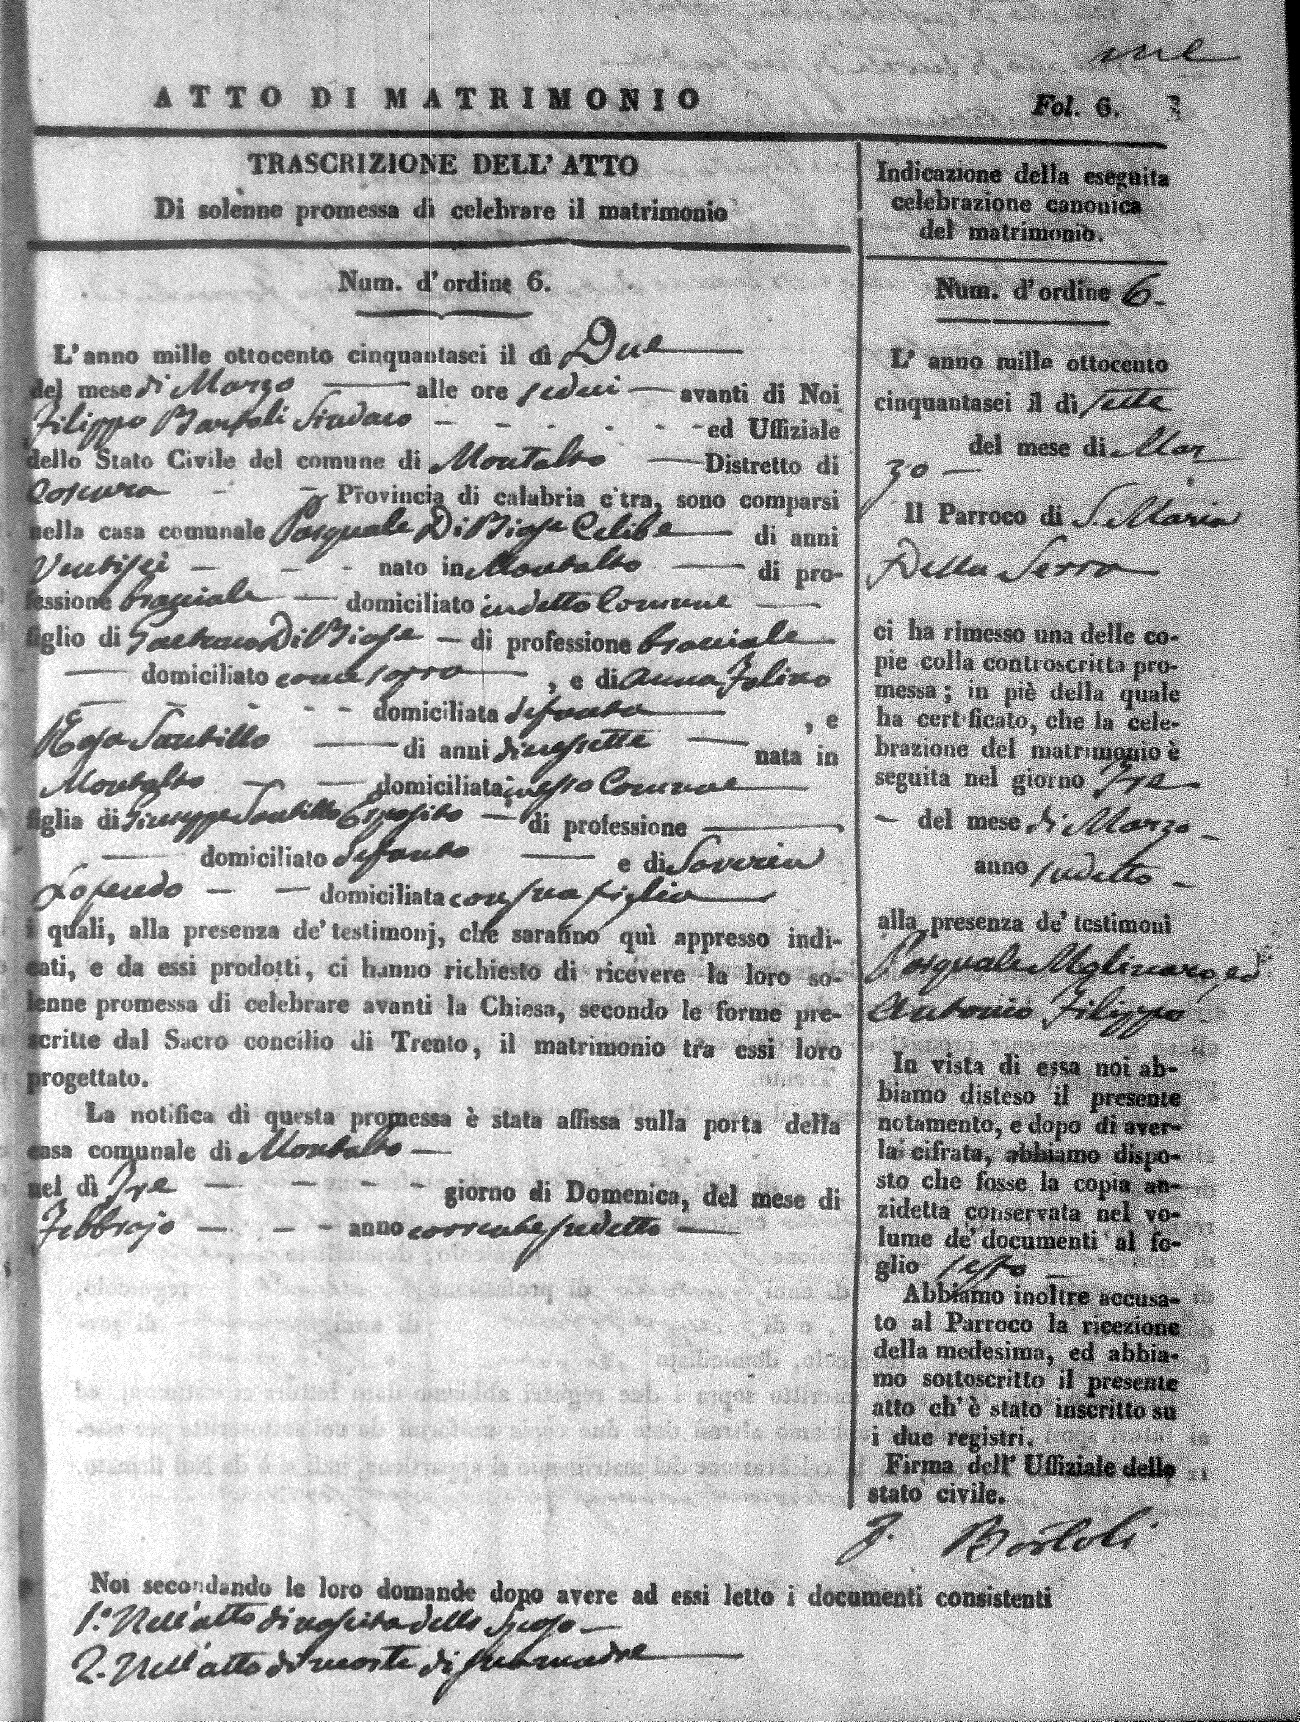 ATTO DI MATRIMONIO
Fol. 6.
TRASCRIZIONE DELL' ATTO
Di solenne promessa di celebrare il matrimonio
Num. d'ordine 6.
L'anno mille ottocento cinquantasei il dì Due
del mese di Marzo alle ore sedici avanti di Noi
Filippo Bartoli Sindaco ed Uffiziale
dello Stato Civile del comune di Montalto Distretto di
Cosenza Provincia di calabria citra, sono comparsi
nella casa comunale Pasquale Di Biase Celibe di anni
Ventisei nato in Montalto di pro-
fessione braciale domiciliato in detto Comune
figlio di Gaetano Di Biase di professione braciale
domiciliato come sopra, e di Anna Folino
domiciliata defunta, e
Rosa Santillo di anni diciassette nata in
Montalto domiciliata in esso Comune
figlia di Giuseppe Santillo Esposito di professione
domiciliato defunto e di Saveria
domiciliata con sua figlia
i quali, alla presenza de' testimonj, che saranno quì appresso indi-
cati, e da essi prodotti, ci hanno richiesto di ricevere la loro so-
lenne promessa di celebrare avanti la Chiesa, secondo le forme pre-
scritte dal Sacro concilio di Trento, il matrimonio tra essi loro
progettato.
La notifica di questa promessa è stata affissa sulla porta della
casa comunale di Montalto
nel dì Tre giorno di Domenica, del mese di
Febbrajo anno corrente sudetto
Indicazione della eseguita
celebrazione canonica
del matrimonio.
Num. d'ordine 6.
L' anno mille ottocento
cinquantasei il dì sette
del mese di Mar
zo
Il Parroco di S. Maria
Della Serra
ci ha rimesso una delle co-
pie colla controscritta pro-
messa; in piè della quale
ha certificato, che la cele-
brazione del matrimonio è
seguita nel giorno Tre
del mese di Marzo
anno sudetto
alla presenza de' testimoni
Pasquale Molinaro, ed
Antonio Filippo
In vista di essa noi ab-
biamo disteso il presente
notamento, e dopo di aver-
la cifrata, abbiamo dispo-
sto che fosse la copia an-
zidetta conservata nel vo-
lume de' documenti al fo-
glio sesto
Abbiamo inoltre accusa-
to al Parroco la ricezione
della medesima, ed abbia-
mo sottoscritto il presente
atto ch' è stato inscritto su
i due registri.
Firma dell' Uffiziale dello
stato civile.
F. Bartoli
Noi secondando le loro domande dopo avere ad essi letto i documenti consistenti
1.° Nell'atto di nascita dello Sposo
2. Nell'atto di morte di sua madre